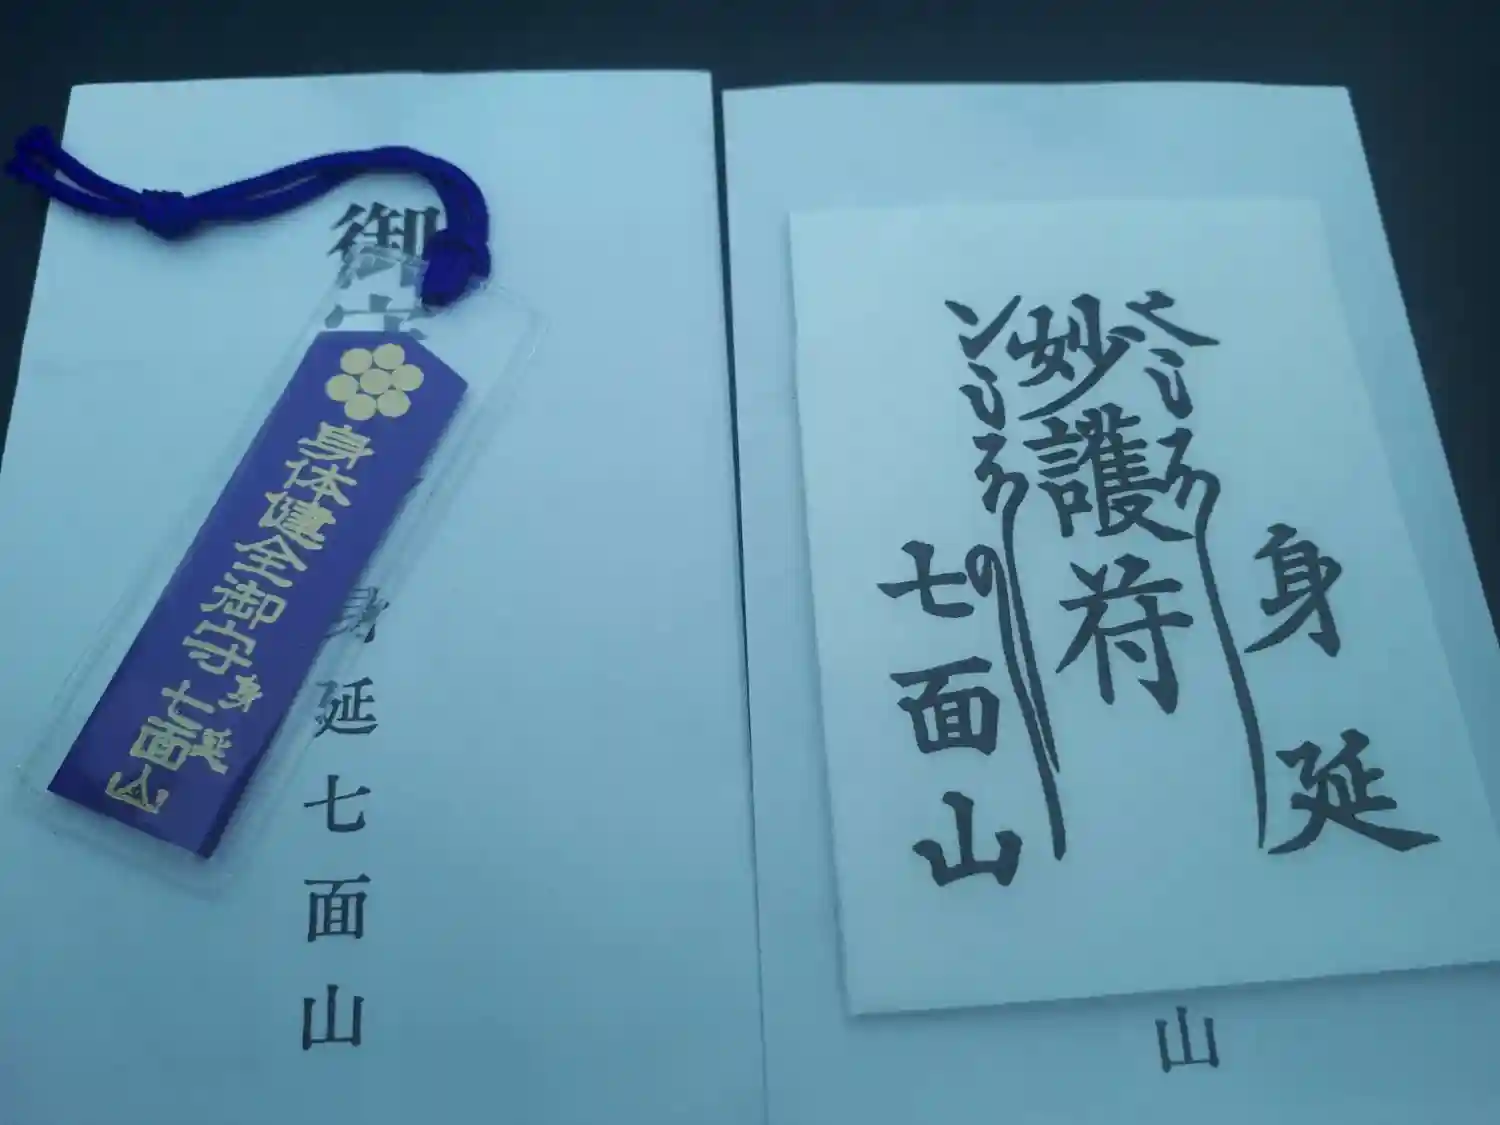 御
身延七面山
身体健全御守
身延
七面山
身延
妙護符
七面山
山